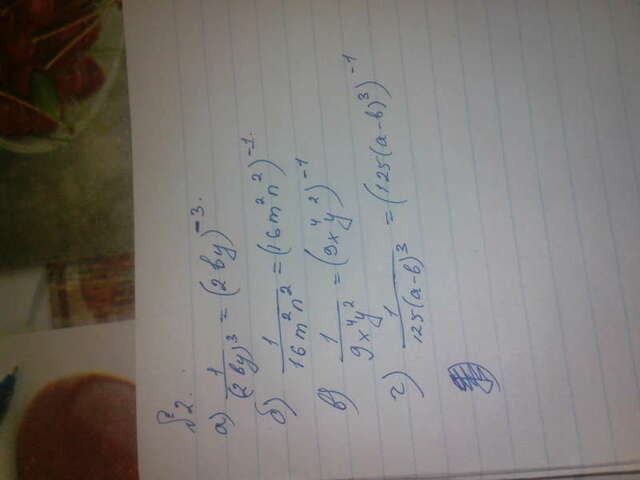 №2.
а) 1/(2by)³ = (2by)⁻³.
б) 1/16m²n² = (16m²n²)⁻¹.
в) 1/9x⁴y² = (9x⁴y²)⁻¹
г) 1/125(a-b)³ = (125(a-b)³)⁻¹